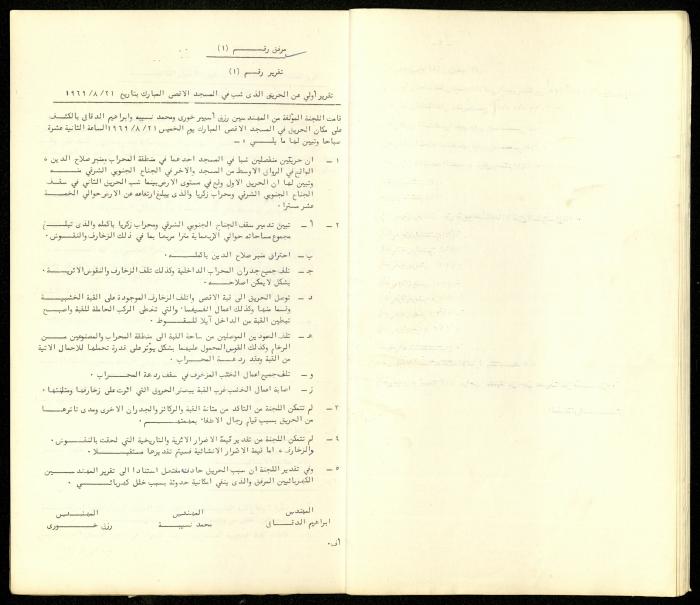 مرفق رقم (١)
تقرير رقم (١)
تقرير أولي عن الحريق الذي شب في المسجد الاقصى المبارك بتاريخ ١٩٦٩/٨/٢١
قامت اللجنة المؤلفة من المهندسين رزق أسبير خوري ومحمد نسيبه وابراهيم الدقاق بالكشف
على مكان الحريق في المسجد الاقصى المبارك يوم الخميس ١٩٦٩/٨/٢١ الساعة الثانية عشرة
صباحا وتبين لها ما يلي :-
١ - ان حريقين منفصلين شبا في المسجد احدهما في منطقة المحراب ومنبر صلاح الدين
الواقع في الرواق الاوسط من المسجد والاخر في الجناح الجنوبي الشرقي منه
وتبين لها ان الحريق الاول وقع في مستوى الارض بينما شب الحريق الثاني في سقف
الجناح الجنوبي الشرقي ومحراب زكريا والذي يبلغ ارتفاعه عن الارض حوالي الخمسة
عشر مترا .
٢ - أ - تبين تدمير سقف الجناح الجنوبي الشرقي ومحراب زكريا باكمله والذي تبلغ
مجموع مساحاته حوالي الاربعماية مترا مربعا بما في ذلك الزخارف والنقوش .
ب - احتراق منبر صلاح الدين باكمله .
ج - تلف جميع جدران المحراب الداخلية وكذلك تلف الزخارف والنقوش الاثرية .
بشكل لا يمكن اصلاحه .
د - توصل الحريق الى قبة الاقصى واتلف الزخارف الموجودة على القبة الخشبية
وقسما منها وكذلك اعمال الفسيفسا والتي تغطي الركب الحاملة للقبة واصبح
تبطين القبة من الداخل آيلا للسقوط .
هـ - تلف العمودين الموصلين من ساحة القبة الى منطقة المحراب والمصنوعين من
الرخام وكذلك القوس المحمول عليهما بشكل يؤثر على قدرة تحملها للاحمال الاتية
من القبة وعقد ردهة المحراب .
و - تلف جميع اعمال الخشب المزخرف في سقف ردهة المحراب .
ز - اصابة اعمال الخشب غرب القبة ببعض الحروق التي اثرت على زخارفها ومتانتها .
٣ - لم تتمكن اللجنة من التاكد من متانة القبة والركائز والجدران الاخرى ومدى تاثرها
من الحريق بسبب قيام رجال الاطفا بعملهم .
٤ - لم تتمكن اللجنة من تقدير كمية الاضرار الاثرية والتاريخية التي لحقت بالنقوش
والزخارف ، اما قيمة الاضرار الانشائية فسيتم تقديرها مستقبلا .
٥ - وفي تقدير اللجنة ان سبب الحريق حادث مفتعل استنادا الى تقرير المهندسين
الكهربائيين المرفق والذي ينفي امكانية حدوثه بسبب خلل كهربائي .
المهندس المهندس المهندس
ابراهيم الدقاق محمد نسيبة رزق خوري